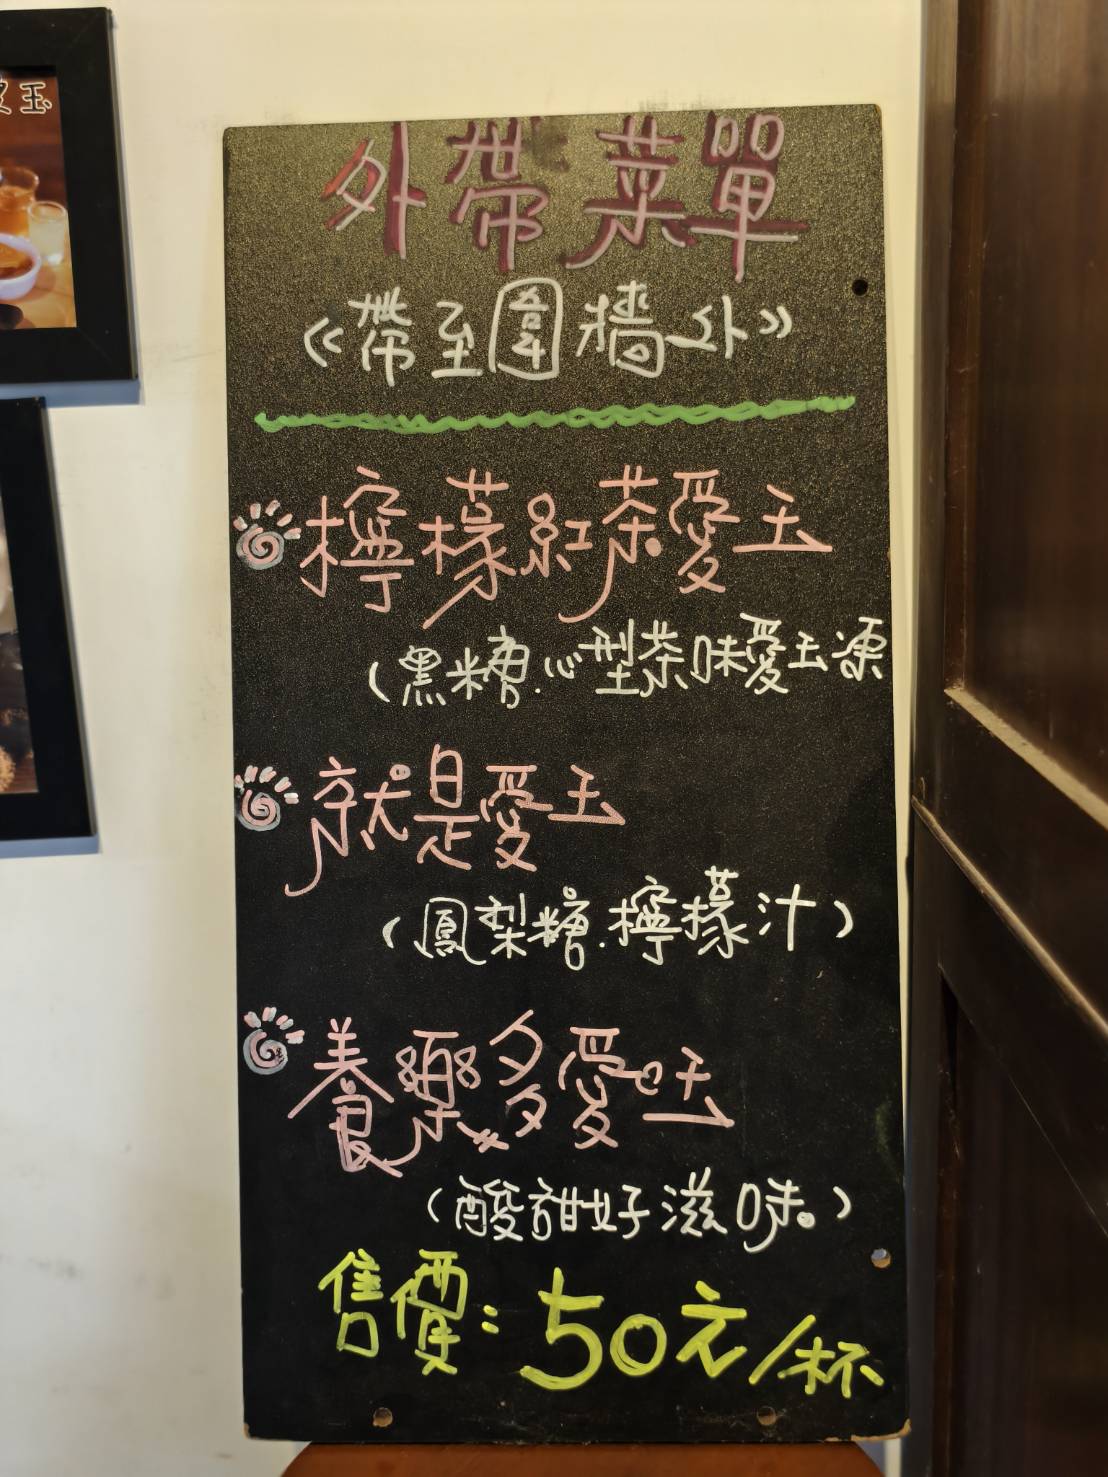 愛玉
外帶菜單
《帶至圍牆外》
檸檬紅茶愛玉
(黑糖.心型茶味愛玉凍
就是愛玉
(鳳梨糖.檸檬汁)
養樂多愛玉
(酸甜好滋味。)
售價:50元/杯